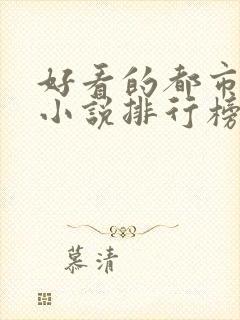 好看的都市
小说排行榜
慕清